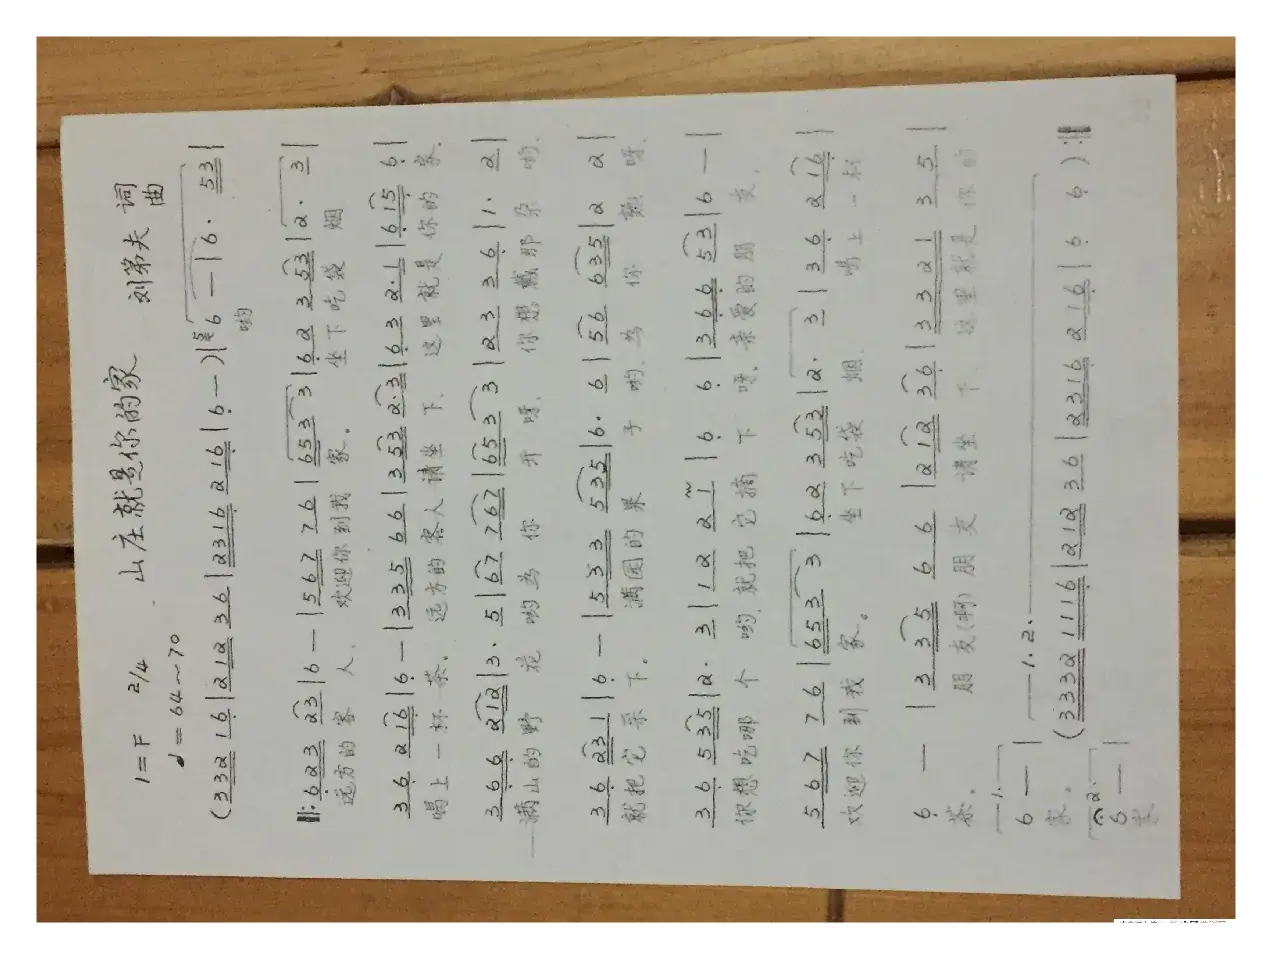 山庄就是你的家 刘第夫 词曲
1=F 2/4
♩=64~70
(332 16 | 212 36 | 2316 216 | 6 — ) | 6 — | 6· 53 |
哟
‖: 623 23 | 6 — | 567 76 | 653 3 | 62 353 | 2· 3 |
远方的客人, 欢迎你到我家。 坐下吃袋烟
36 216 | 6 — | 335 66 | 352 2·3 | 63 2·1 | 615 6 |
喝上一杯茶。 远方的客人请坐下, 这里就是你的家。
366 212 | 3· 5 | 67 767 | 653 3 | 23 36 | 1· 2 |
满山的野花哟为你开呀, 你想戴那朵哟,
36 231 | 6 — | 533 535 | 6· 6 | 56 635 | 2 2 |
就把它采下。 满园的果子哟, 为你颤呀,
36 535 | 2· 3 | 12 21 | 6 6 | 366 53 | 6 — |
你想吃哪个哟,就把它摘下呀。 亲爱的朋友,
567 76 | 653 3 | 62 353 | 2· 3 | 36 216 |
欢迎你到我家。 坐下吃袋烟, 喝上一杯
6 — | 3 335 6 6 | 212 36 | 3321 35 |
茶。 朋友(啊)朋友 请坐下 这里就是你的
1. 1.2.
6 — | (3332 1116 | 212 36 | 2316 216 | 6 6 ) :‖
家。
2.
6 — |
家